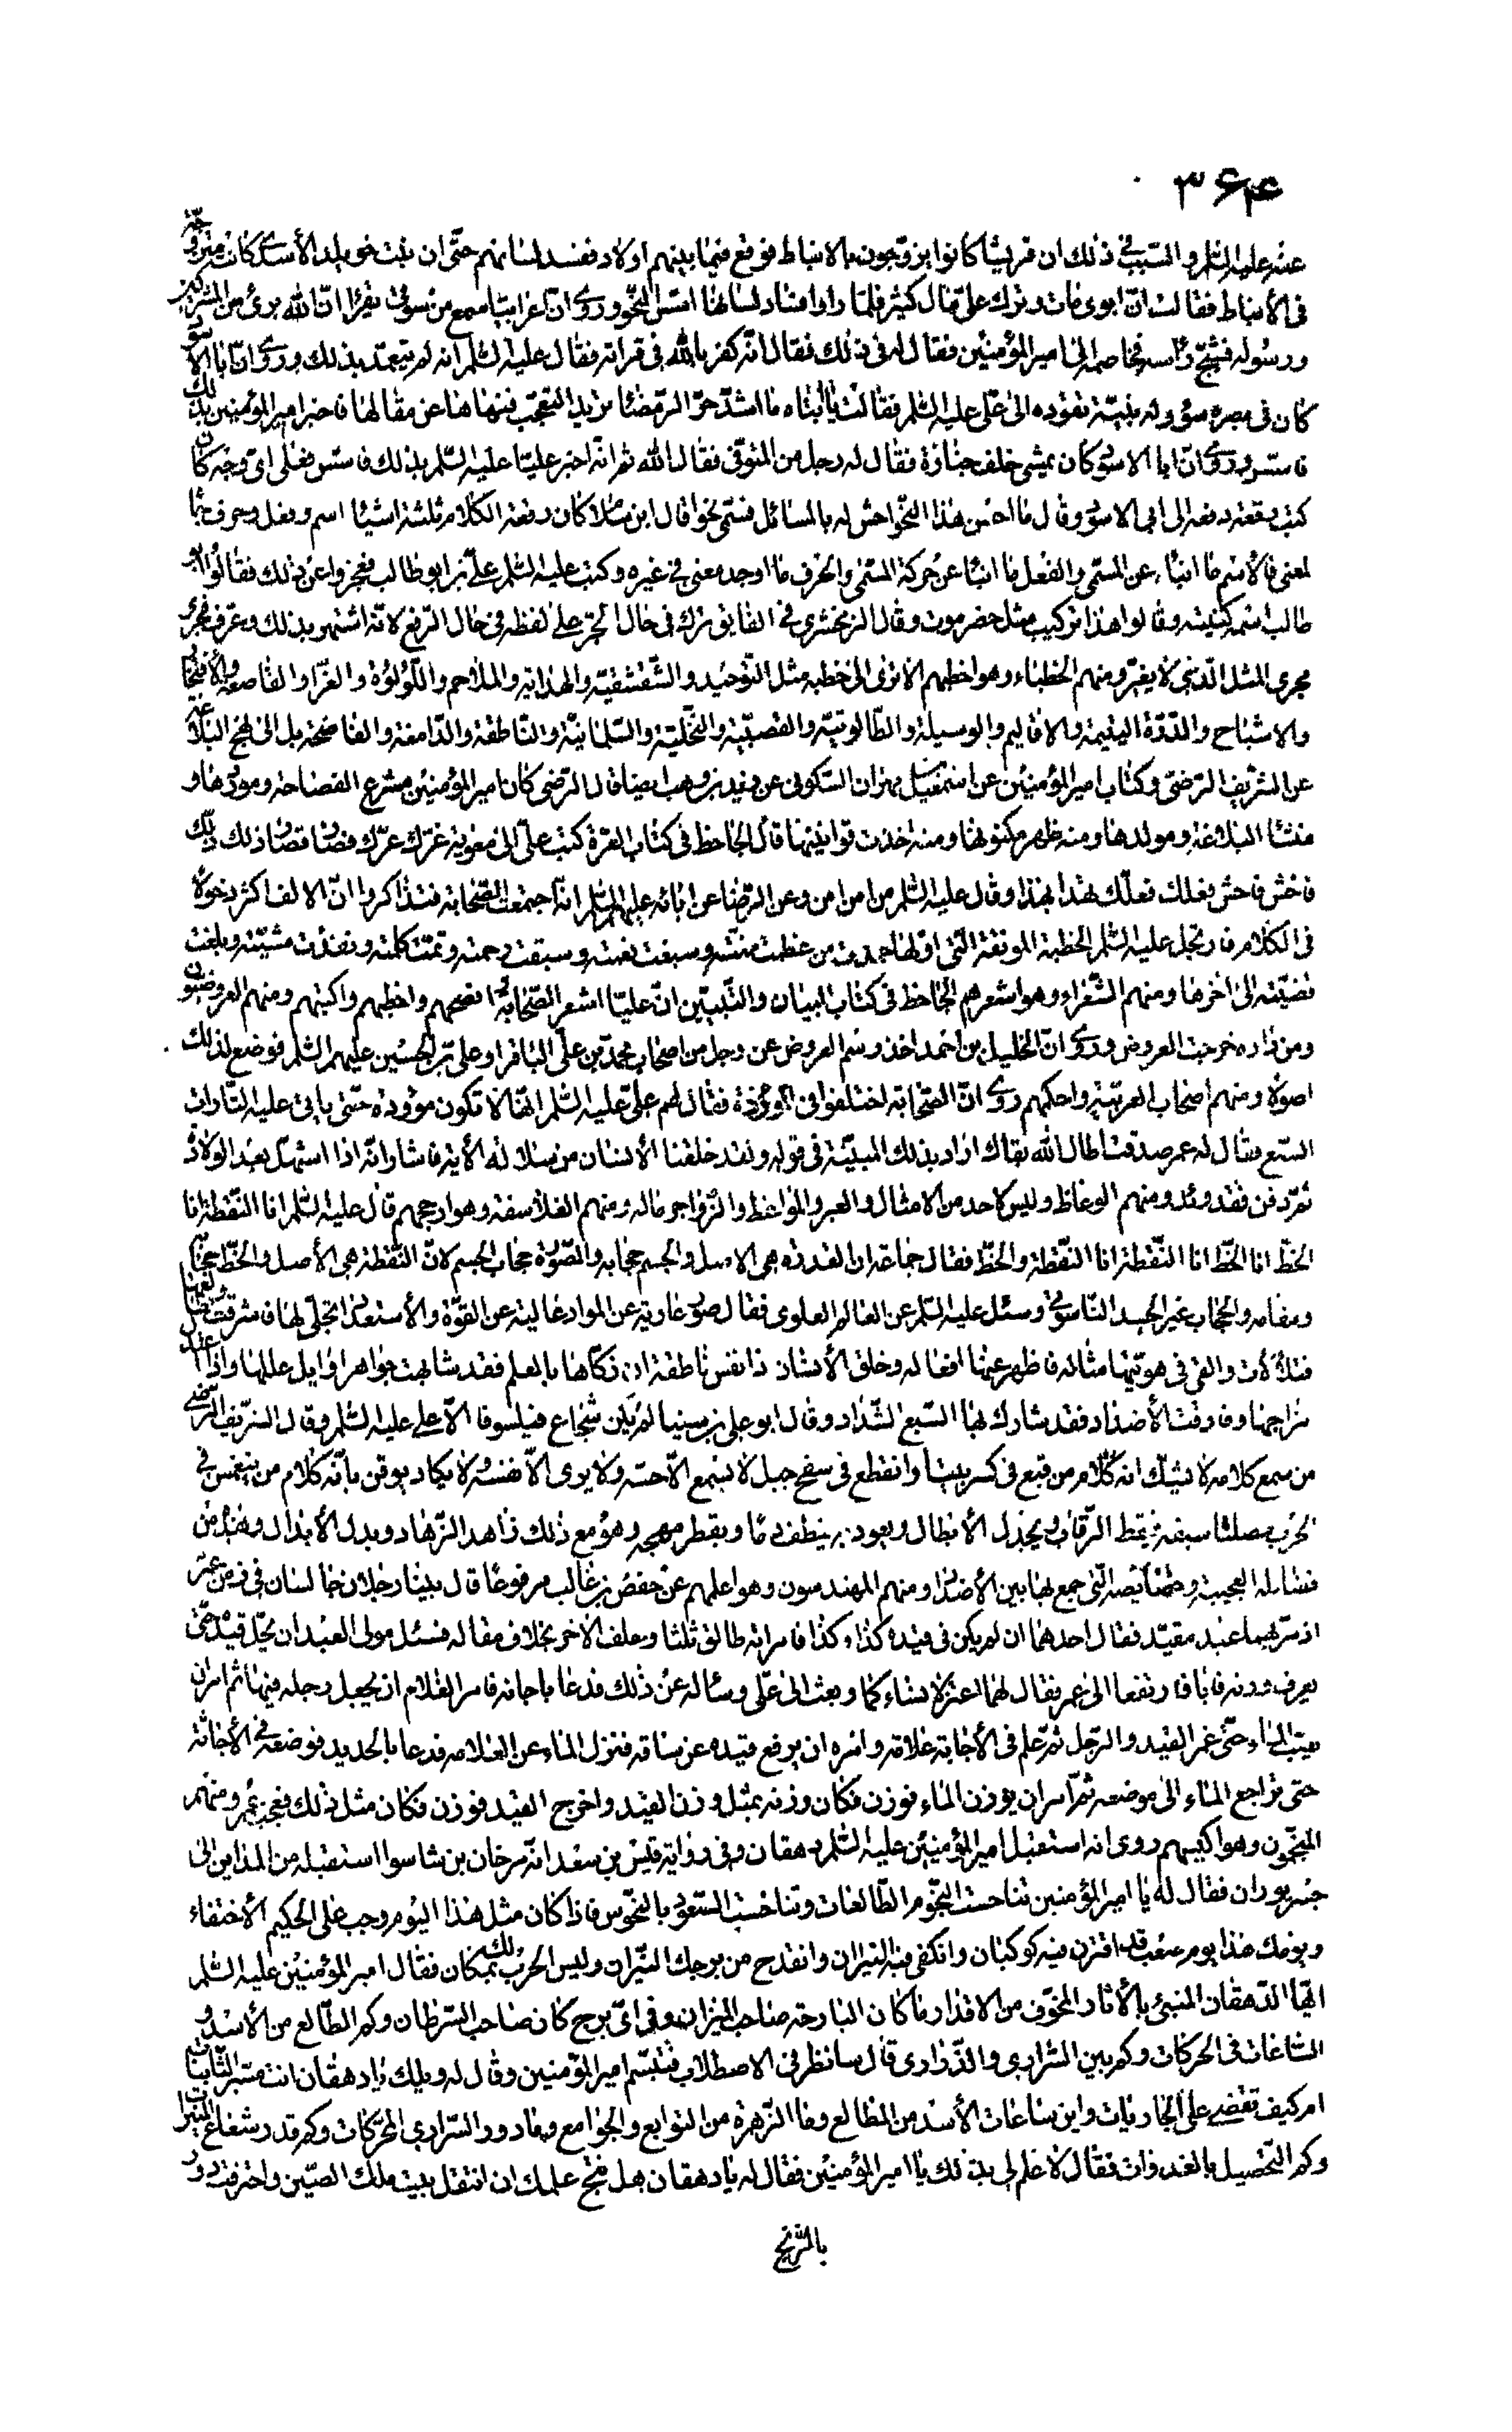 ۳۶۴
عنه عليه السّلم والسّبب في ذلك ان قريشا كانوا يزوّجون بالانباط فوقع فيما بينهم اولاد ففسد لسانهم حتّى ان بنت خويلد الأسدي كانت متزوّجة
فى الأنباط فقالت انّ ابوى مات وترك علىّ مال كثير فلمّا راوا فساد لسانها اسّس النّحو وروى انّ اعرابيّا سمع من سوقى يقرا انّ الله برئ من المشركين
ورسوله فشجّ رأسه فخاصمه الى امير المؤمنين فقال له فى ذلك فقال انّه كفر بالله فى قراته فقال عليه السّلم انه لم يتعمّد بذلك وروى انّ ابا الاسود
كان فى بصره سوء وله بنيّة تقوده الى علىّ عليه السّلم فقالت يا أبتاه ما اشدّ حرّ الرّمضاء تريد التعجّب فنهاها عن مقالها فاخبر امير المؤمنين بذلك
فاسّس وروى انّ ابا الاسود كان يمشى خلف جنازة فقال له رجل من المتوفّى فقال الله ثم انّه اخبر عليّا عليه السّلم بذلك فاسّس فعلى اىّ وجه كان
كتب رقعة دفعه الى ابى الاسود وقال ما احسن هذا النّحو احش له بالمسائل فسمّى نحوا قال ابن سلام كان رقعة الكلام ثلثة اشياء اسم وفعل وحرف جاء
لمعنى فالاسم ما انبأ عن المسمّى والفعل ما انبأ عن حركة المسمّى والحرف ما اوجد معنى فى غيره وكتب عليه السّلم علىّ بن ابو طالب فعجزوا عن ذلك فقالوا ابو
طالب اسمه كنيته وقالوا هذا تركيب مثل حضرموت وقال الزمخشرى فى الفايق ترك فى حال الجرّ على لفظه فى حال الرّفع لانّه اشتهر بذلك وعرف فجرى
مجرى المثل الّذى لا يغيّر ومنهم الخطباء وهو اخطبهم الا ترى الى خطبه مثل التّوحيد والشّقشقيّة والهداية والملاحم واللّؤلؤة والغرّا والقاصعة والافتخار
والاشباح والدّرّة اليتيمة والاقاليم والوسيلة والطّالوتيّة والقصبيّة والنّخيلة والسّلمانيّة والنّاطقة والدّامغة والفاضحة بل الى نهج البلاغة
عن الشريف الرّضى وكتاب امير المؤمنين عن اسمعيل بن مهران السّكونى عن زيد بن وهب ايضا قال الرّضى كان امير المؤمنين مشرع الفصاحة وموردها و
منشأ البلاغة ومولدها ومنه ظهر مكنونها ومنه اخذت قوانينها قال الجاحظ فى كتاب الغرّة كتب علىّ الى معوية غرّك عزّك فصار قصار ذلك ذلّك
فاخش فاحش فعلك فعلّك تهدا بهذا وقال عليه السّلم من امن امن وعن الرّضا عن ابائه عليهم السّلم انّه اجتمعت الصّحابة فتذاكروا انّ الالف اكثر دخولا
فى الكلام فارتجل عليه السّلم الخطبة المونقة الّتى اوّلها حمدت من عظمت منّته وسبغت نعمته وسبقت رحمته وتمّت كلمته ونفذت مشيّته وبلغت
قضيّته الى اخرها ومنهم الشّعراء وهو اشعرهم الجاحظ فى كتاب البيان والتّبيين انّ عليّا اشعر الصّحابة وافصحهم واخطبهم واكتبهم ومنهم العروضيّون
ومن داره خرجت العروض وروى انّ الخليل بن احمد اخذ رسم العروض عن رجل من اصحاب محمّد بن علىّ الباقر او علىّ بن الحسين عليهم السّلم فوضع لذلك
اصولا ومنهم اصحاب العربيّة واحكمهم روى انّ الصّحابة اختلفوا فى الموؤدة فقال لهم علىّ عليه السّلم انّها لا تكون موؤدة حتّى ياتى عليه التّارات
السّبع فقال له عمر صدقت اطال الله بقاك اراد بذلك المبيّنة فى قوله ولقد خلقنا الأنسان من سلالة الأية فاشار انّه اذا استهلّ بعد الولادة
ثمّ دفن فقد وئد ومنهم الوعّاظ وليس لاحد من الامثال والعبر والمواعظ والزّواجر ما له ومنهم الفلاسفة وهو ارجحهم قال عليه السّلم انا النّقطة انا
الخطّ انا الخطّ انا النّقطة انا النّقطة والخطّ فقال جماعة ان القدرة هى الاصل والجسم حجابه والصّورة حجاب الجسم لانّ النّقطة هى الأصل والخطّ حجابه
ومقامه والحجاب غير الجسد النّاسوتى وسئل عليه السّلم عن العالم العلوى فقال صور عارية عن المواد عالية عن القوّة والأستعداد تجلّى لها فاشرقت وطالعها
فتلألأت والقى فى هويّتها مثاله فاظهر عنها افعاله وخلق الأنسان ذا نفس ناطقة ان زكّاها بالعلم فقد شابهت جواهر اوايل عللها واذا اعتدل
مزاجها وفارقت الأضداد فقد شارك بها السّبع الشّداد وقال ابو على بن سينا لم يكن شجاع فيلسوفا الّا علىّ عليه السّلم وقال الشريف الرّضى
من سمع كلامه لا يشكّ انه كلام من قبع فى كسر بيت او انقطع فى سفح جبل لا يسمع الّا حسّه ولا يرى الّا نفسه لا يكاد يوقن بانّه كلام من ينغمس فى
الحرب مصلتا سيفه فيقط الرّقاب ويجدّل الأبطال ويعود به ينطف دما ويقطر مهجه وهو مع ذلك زاهد الزّهاد وبدل الأبدال وهذه من
فضايله العجيبة وخصائصه الّتى جمع بها بين الأضداد ومنهم المهندسون وهو اعلمهم عن حفص بن غالب مرفوعا قال بينا رجلان جالسان فى زمن عمر
اذ مرّ بهما عبد مقيّد فقال احدهما ان لم يكن فى قيده كذا وكذا فامراته طالق ثلثا وحلف الآخر بخلاف مقاله فسئل مولى العبد ان يحلّ قيده حتّى
يعرف وزنه فابا فارتفعا الى عمر فقال لهما اعتزلا نساءكما وبعث الى علىّ وساله عن ذلك فدعا باجانة فامر الغلام ان يجعل رجله فيها ثم امر ان
يصبّ الماء حتّى غمر القيد والرّجل ثمّ علم فى الأجانة علامة وامره ان يرفع قيده عن ساقه فنزل الماء عن العلامة فدعا بالحديد فوضعه فى الأجانة
حتى تراجع الماء الى موضعه ثمّ امر ان يوزن الماء فوزن فكان وزنه بمثل وزن القيد واخرج القيد فوزن فكان مثل ذلك فعجب عمر ومنهم
المنجّمون وهو اكيسهم روى انه استقبل امير المؤمنين عليه السّلم دهقان وفى رواية قيس بن سعد انّه مرخان بن شاسوا استقبله من المداين الى
جسر بوران فقال له يا امير المؤمنين تناحست النّجوم الطّالعات وتناحست السّعود بالنّحوس فاذا كان مثل هذا اليوم وجب على الحكيم الأختفاء
ويومك هذا يوم صعب قد اقترن فيه كوكبان وانكفى فيه الميزان وانقدح من برجك النّيران وليس الحرب لك بمكان فقال امير المؤمنين عليه السّلم
ايّها الدّهقان المنبئ بالأثار المخوّف من الاقدار ما كان البارحة صاحب الميزان وفى اىّ برج كان صاحب السّرطان وكم الطّالع من الأسد و
السّاعات فى الحركات وكم بين السّرارى والدّرارى قال سانظر فى الاصطرلاب فتبسّم امير المؤمنين وقال له ويلك يا دهقان انت مسيّر الثّابتات
ام كيف تقضى على الجاريات واين ساعات الأسد من المطالع وما الزّهرة من التوابع والجوامع وما دور السّرارى المحرّكات وكم قدر شعاع المنيرات
وكم التّحصيل بالغدوات فقال لا علم لى بذلك يا امير المؤمنين فقال له يا دهقان هل نتج علمك ان انتقل بيت ملك الصّين واحترقت دور
بالزّنج